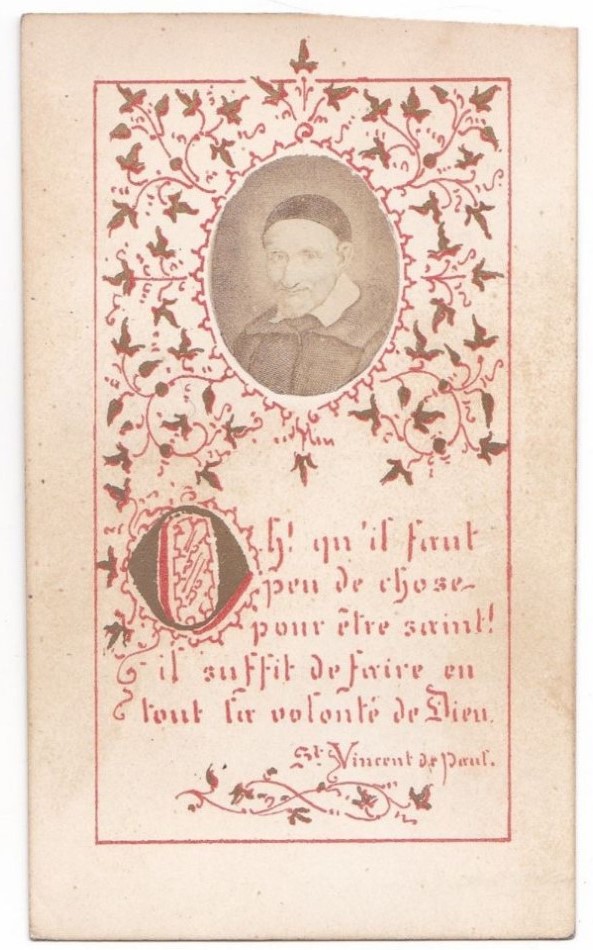 Oh! qu'il faut
peu de chose
pour être saint!
il suffit de faire en
tout la volonté de Dieu.
St Vincent de Paul.